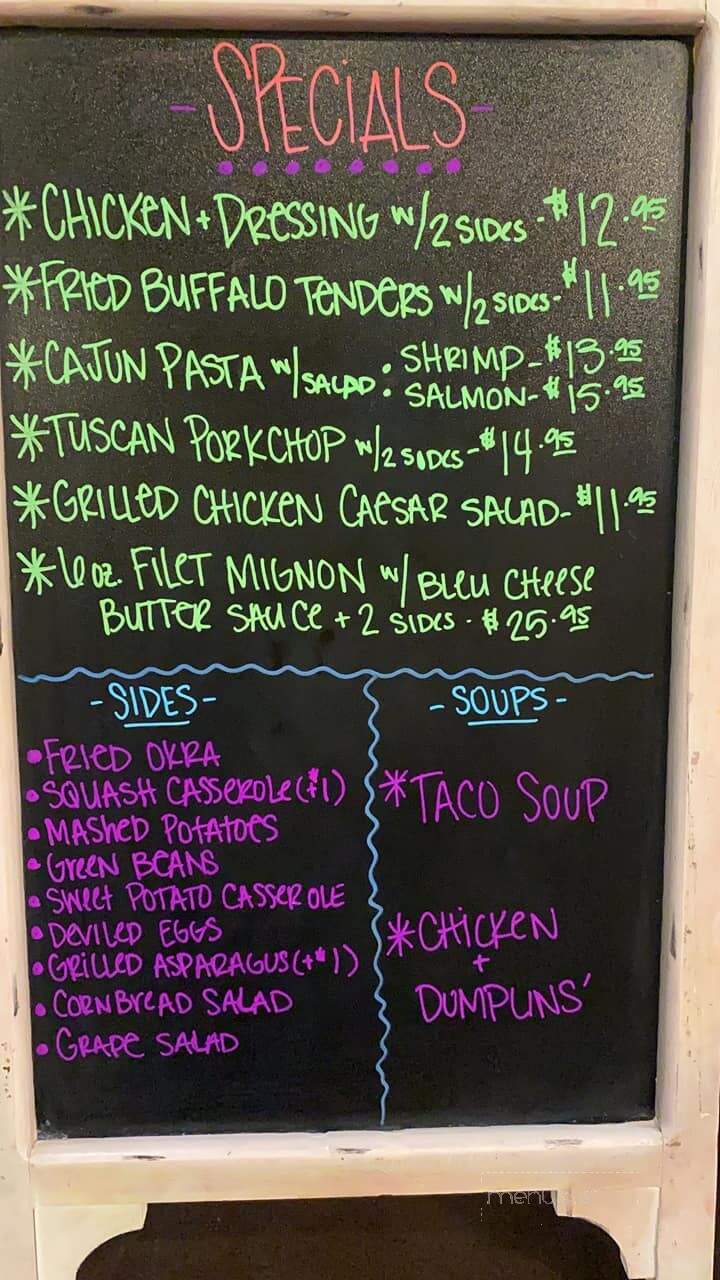 - SPECIALS -
* CHICKEN + DRESSING W/ 2 SIDES - $12.95
* FRIED BUFFALO TENDERS W/ 2 SIDES - $11.95
* CAJUN PASTA W/ SALAD : SHRIMP - $13.95
SALMON - $15.95
* TUSCAN PORKCHOP W/ 2 SIDES - $14.95
* GRILLED CHICKEN CAESAR SALAD - $11.95
* 6 oz. FILET MIGNON W/ BLEU CHEESE
BUTTER SAUCE + 2 SIDES - $25.95
- SIDES -
• FRIED OKRA
• SQUASH CASSEROLE (+$1)
• MASHED POTATOES
• GREEN BEANS
• SWEET POTATO CASSEROLE
• DEVILED EGGS
• GRILLED ASPARAGUS (+$1)
• CORNBREAD SALAD
• GRAPE SALAD
- SOUPS -
* TACO SOUP
* CHICKEN
+
DUMPLINS'